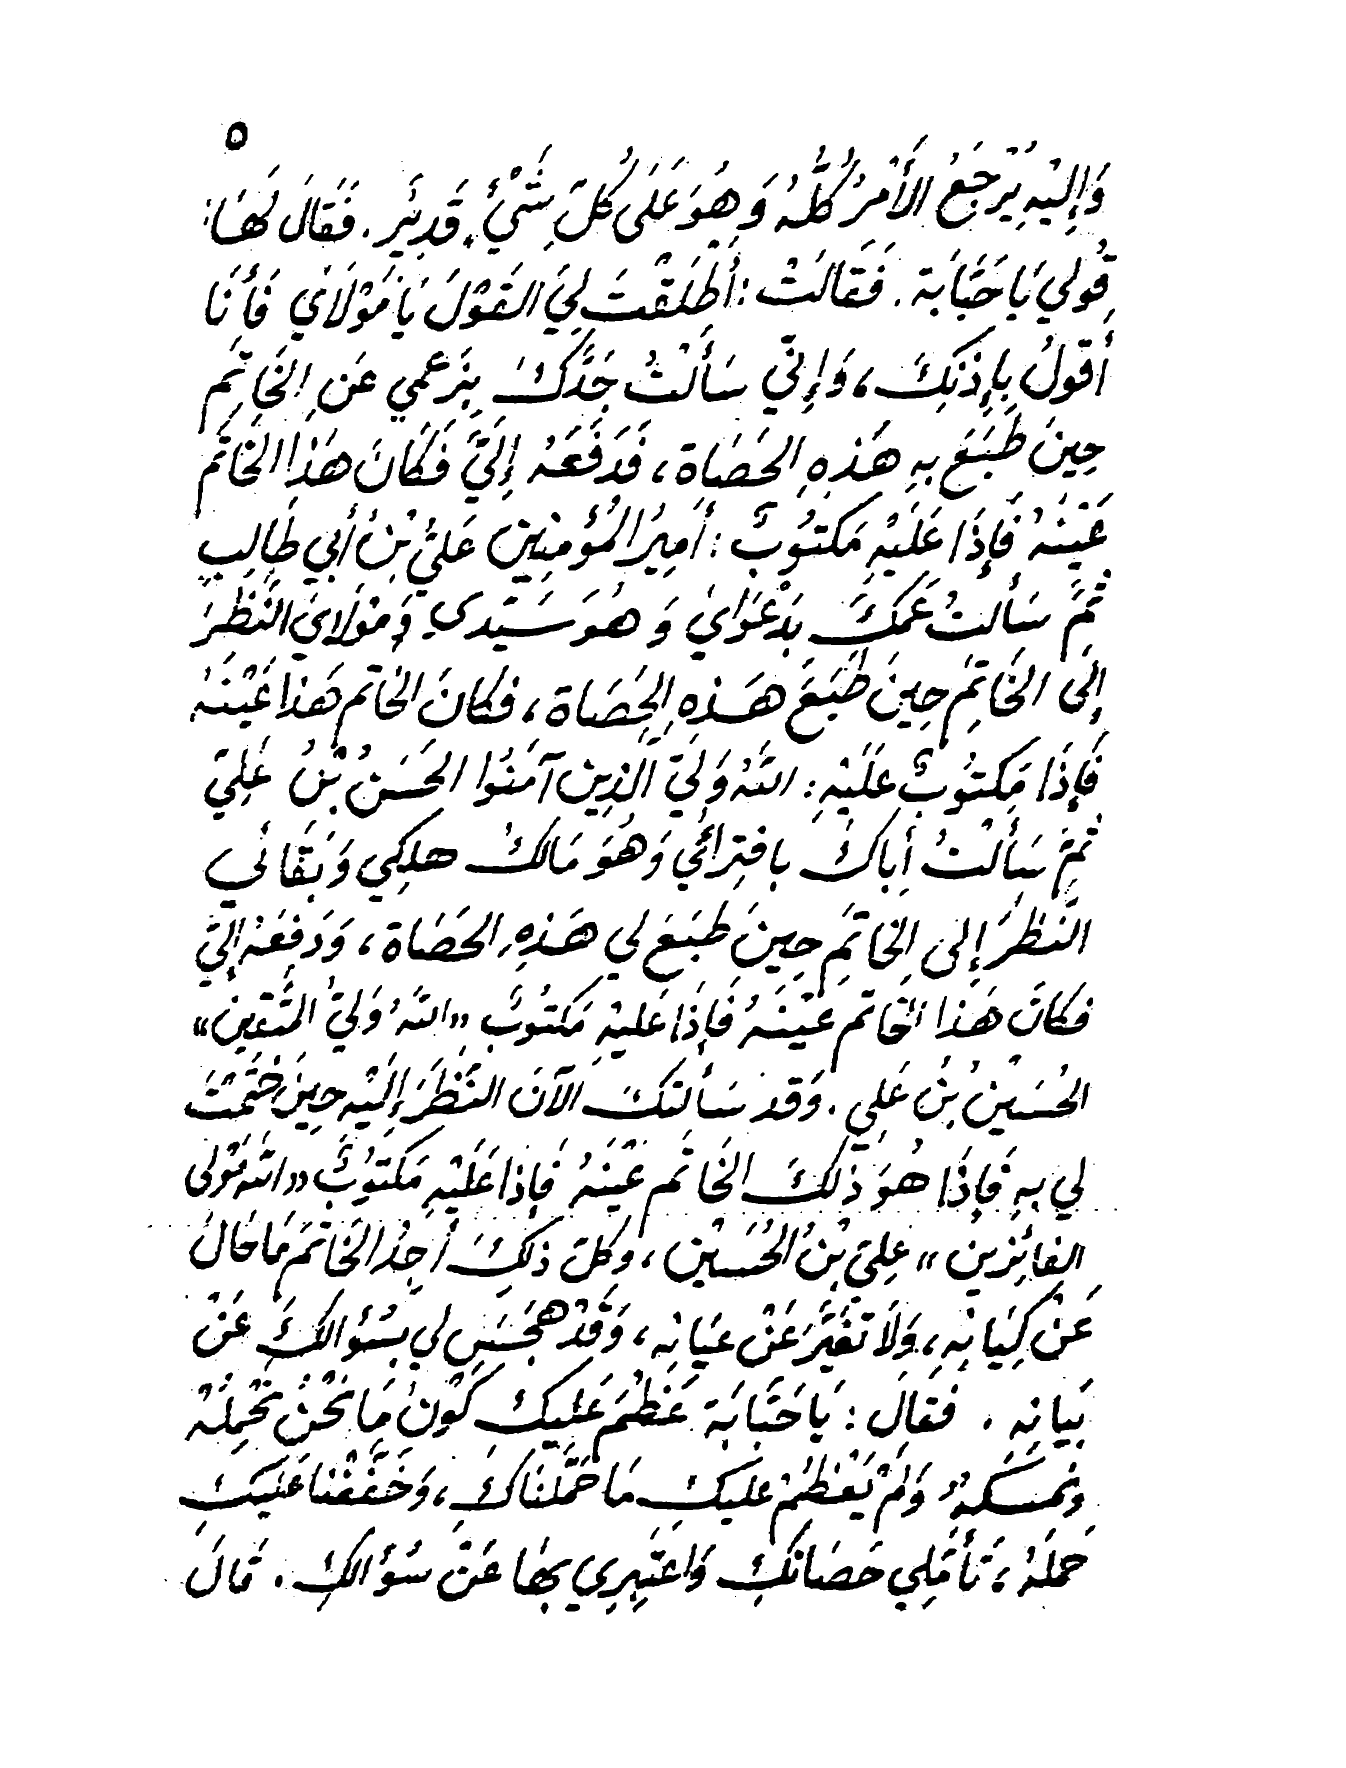 ٥
وَإِلَيْهِ يُرْجَعُ الأَمْرُ كُلُّهُ وَهُوَ عَلَى كُلِّ شَيْءٍ قَدِيْرٍ . فَقَالَ لَهَا :
قُولِي يَا حَبَّابَة . فَقَالَتْ : أَطْلَقْتَ لِيَ القَوْلَ يَا مَوْلَايَ فَأَنَا
أَقُولُ بِإِذْنِكَ ، وَإِنِّي سَأَلْتُ جَدَّكَ بِزَعْمِي عَنِ الخَاتِمِ
حِينَ طَبَعَ بِهِ هَذِهِ الحَصَاة ، فَدَفَعَهُ إِلَيَّ فَكَانَ هَذَا الخَاتَم
عَيْنَهُ فَإِذَا عَلَيْهِ مَكْتُوبٌ : أَمِيرُ المُؤْمِنِين عَلِيُّ بْنُ أَبِي طَالِبٍ
ثُمَّ سَأَلْتُ عَمَّكَ بِدَعْوَايَ وَهُوَ سَيِّدِي وَمَوْلَايَ النَّظَرَ
إِلَى الخَاتِمِ حِينَ طَبَعَ هَذِهِ الحَصَاة ، فَكَانَ الخَاتم هَذَا عَيْنَهُ
فَإِذَا مَكْتُوبٌ عَلَيْهِ : اللهُ وَلِيُّ الَّذِينَ آمَنُوا الحَسَنُ بْنُ عَلِيّ
ثُمَّ سَأَلْتُ أَبَاكَ بِافْتِرَائِي وَهُوَ مَالِكُ هلكِي وَبَقَائِي
النَّظَرَ إِلَى الخَاتِمِ حِينَ طَبَعَ لِي هَذِهِ الحَصَاة ، وَدَفَعَهُ إِلَيَّ
فَكَانَ هَذَا الخَاتم عَيْنَهُ فَإِذَا عَلَيْهِ مَكْتُوبٌ « اللهُ وَلِيُّ المُتَّقِين »
الحُسَيْنُ بْنُ عَلِي . وَقَدْ سَأَلتكَ الآنَ النَّظَرَ إِلَيْهِ حِينَ خَتَمْتَ
لِي بِهِ فَإِذَا هُوَ ذَلِكَ الخَاتَم عَيْنَهُ فَإِذَا عَلَيْهِ مَكْتُوبٌ « اللهُ مَوْلى
الفائِزِينَ » عَلِيّ بْنُ الحُسَيْن ، وَكلّ ذلِكَ أَجِدُ الخَاتَمَ مَا حَالَ
عَنْ كِيَانِهِ ، وَلَا تَغَيَّرَ عَنْ عِيَانِه ، وَقَدْ هَجَسَ لِي بِسُؤَالِكَ عَنْ
بَيَانِهِ . فَقَالَ : يَا حَبَّابَة عَظُمَ عَلَيكِ كَوْن مَا نَحْنُ نَحْمِلهُ
وَنمسكهُ وَلَمْ يَعْظُمْ عَلَيكِ مَا حَمَّلْنَاكِ ، وَخَفَّفْنَا عَلَيْكِ
حَملَهُ ، تَأَمَّلِي حَصَاتكِ وَاعْتَبِرِي بِهَا عَنْ سُؤَالكِ . قَالَ